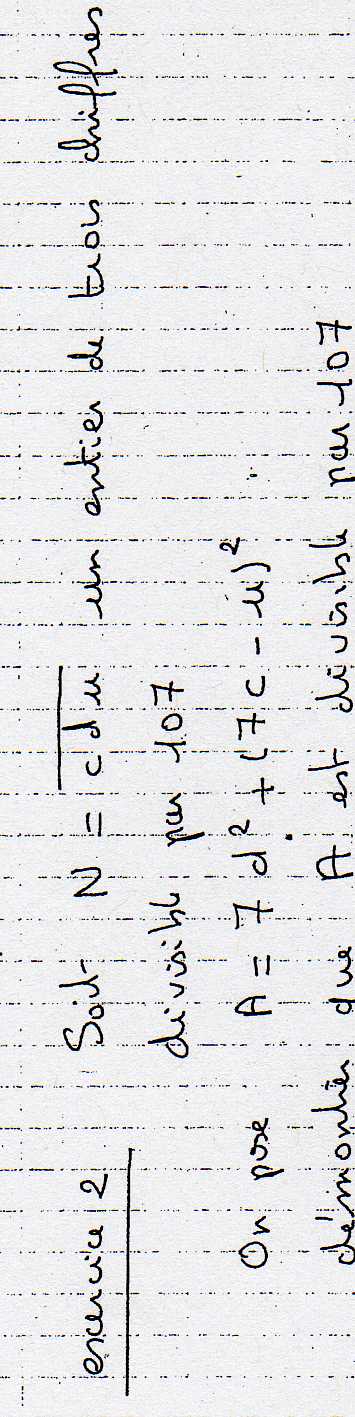 exercice 2
Soit N = \overline{cdu} un entier de trois chiffres
divisible par 107
On pose A = 7 d² + (7c - u)²
démontrer que A est divisible par 107